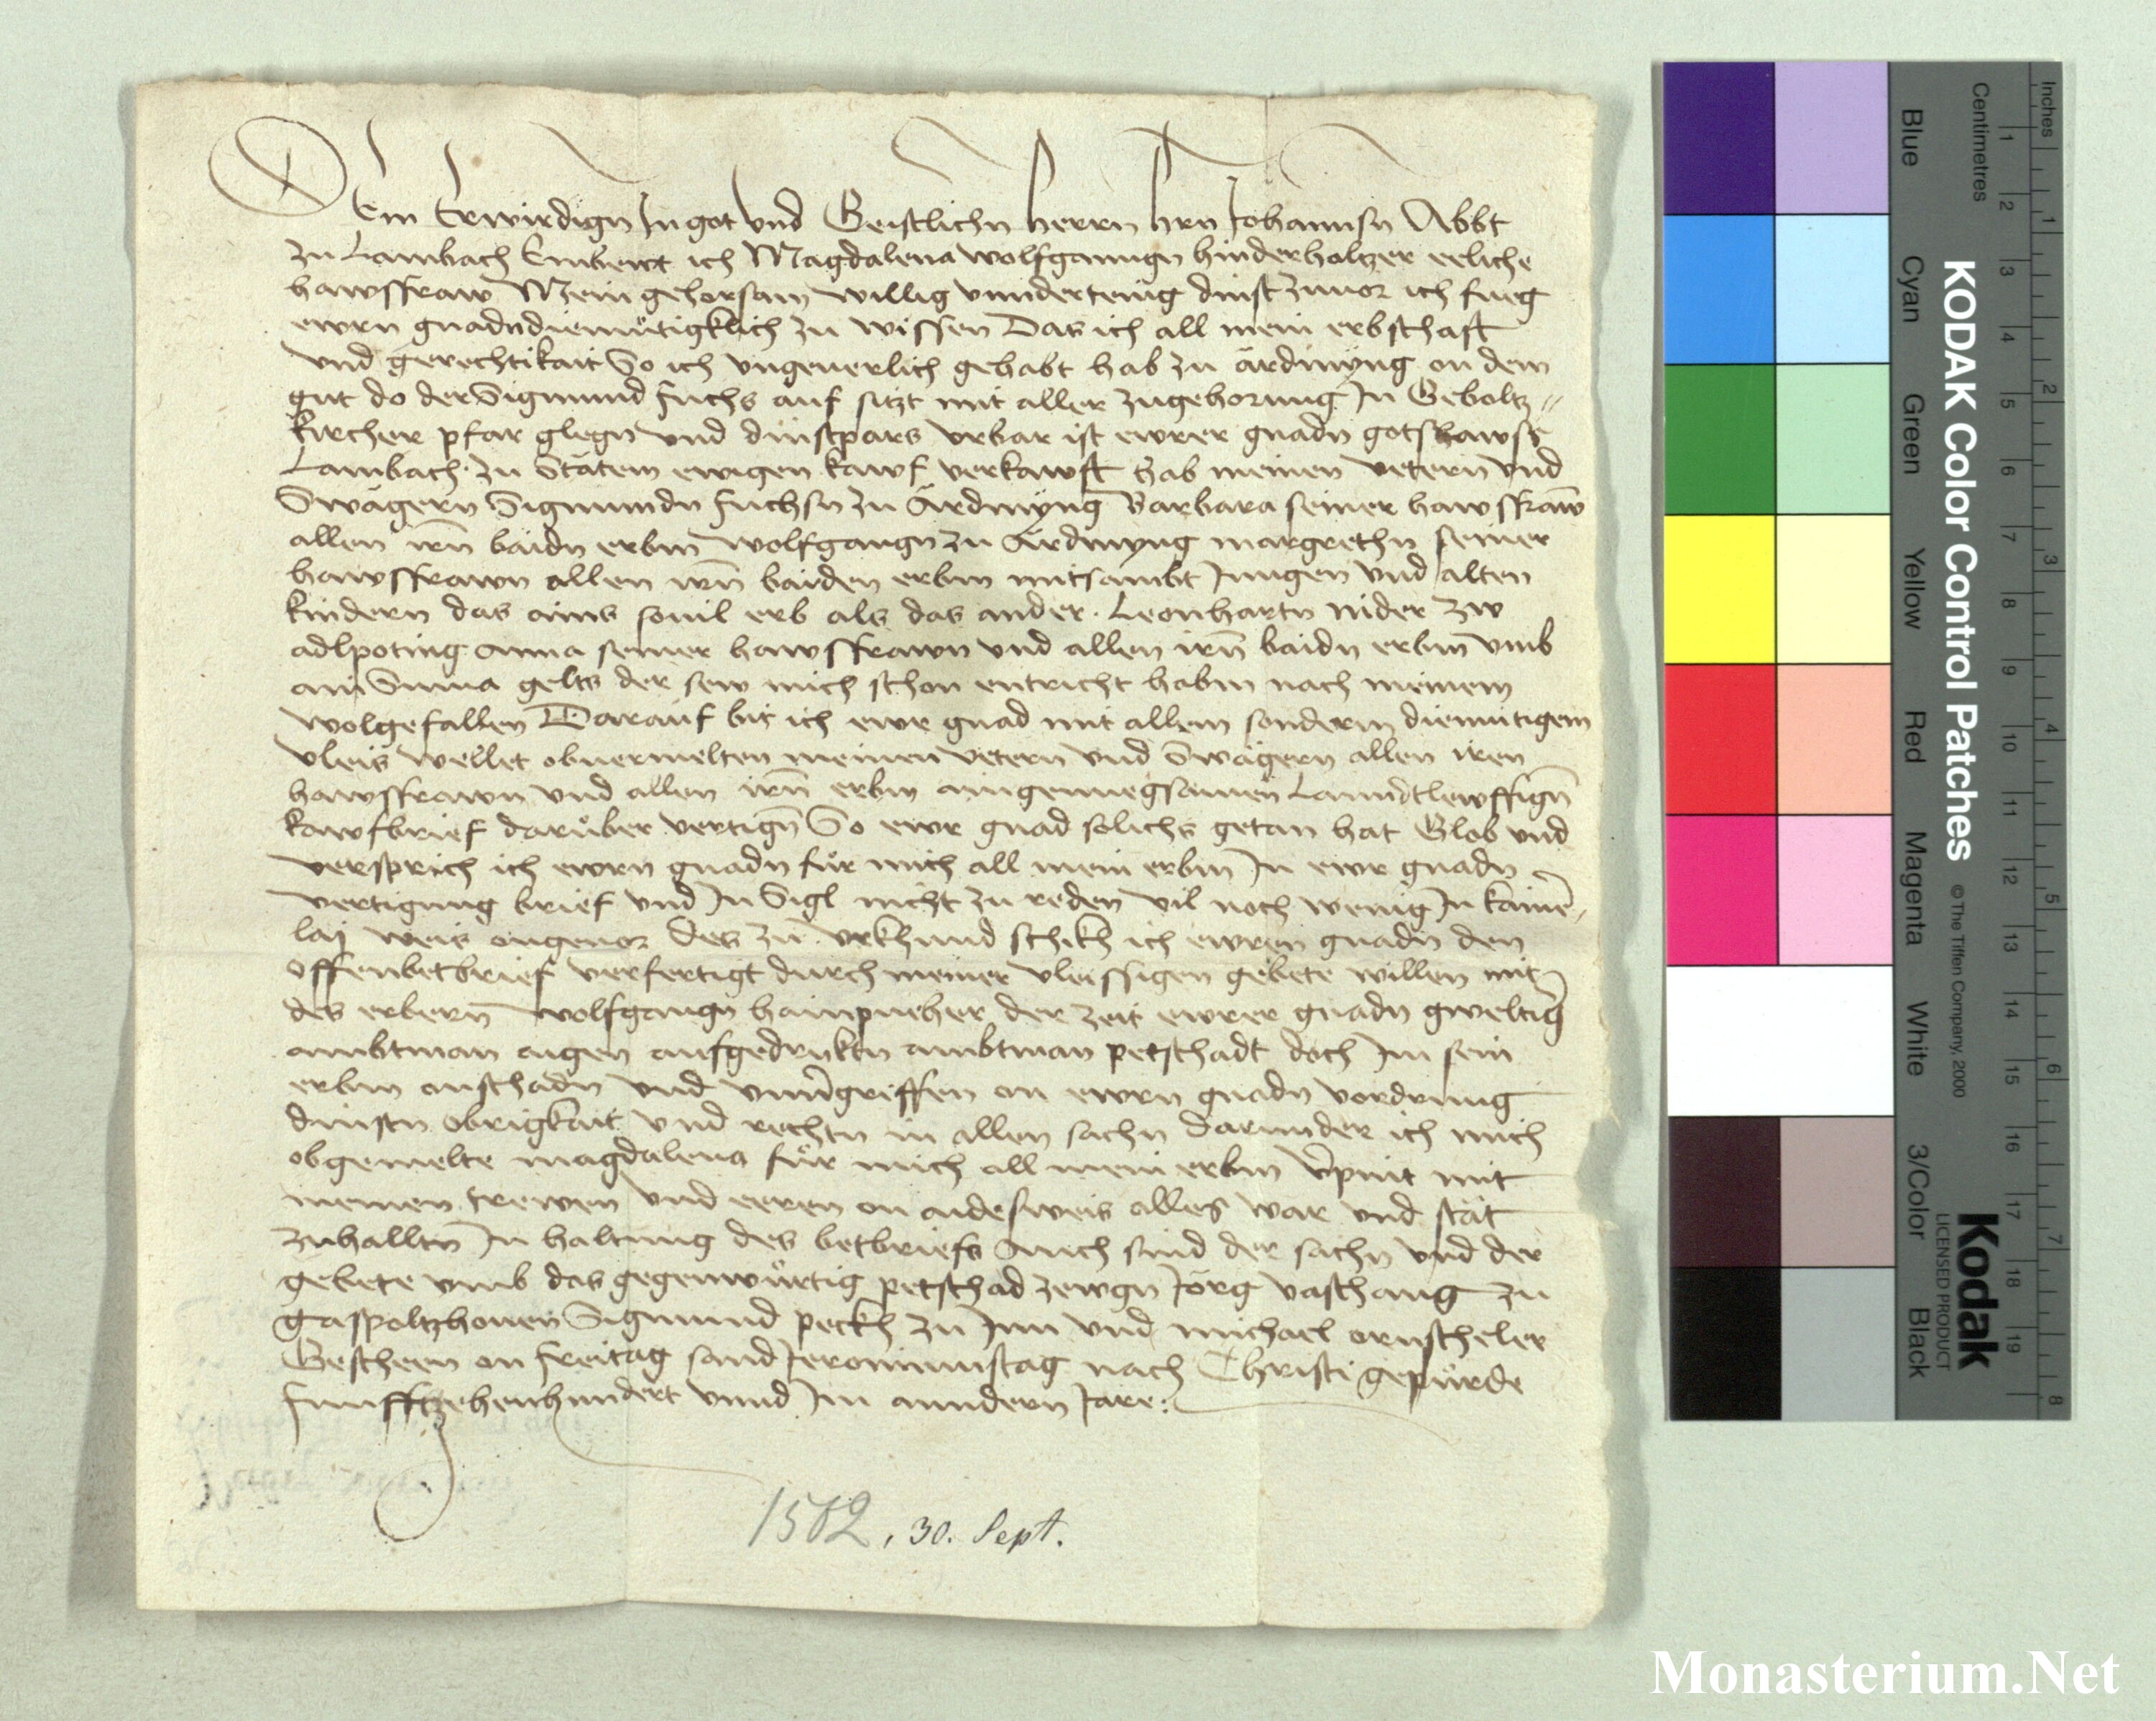 Dem Erwirdign In got vnd Geistlichn herrn hrn Johannsn Abbt
zu Lambach Embewt ich Magdalena wolfganngn hinderholtzer eeliche
hawsfraw Mein gehorsam willig vnnderteing dinst zuuor ich fueg
ewrn gnadn diemůtigklich zu wissen Das ich all mein erbschaft
vnd gerechtikait So ich vngeuerlich gehabt hab zu ärdmyng on dem
gut do der Sigmund fuchs auf sitzt mit aller zugehorung In Geboltz„
kircher pfar glegn vnd dinstpars vrbar ist ewrer gnadn gotshawss
Lambach zu Stätem ewigen kawf verkawft hab meinen vetern vnd
Swägern Sigmundn fuchsn zu Ärdmyng Barbara seiner hawsfraw
allen irn baidn erbm wolfgangn zu Ärdmyng margrethn seiner
hawsfrawn allen irn baiden erbm mitsambt Jungen vnd alten
kindern das ains souil erb als das ander. Leonhartn nider zw
adlpoting anna seiner hawsfrawn vnd allen irn baidn erbm vmb
ain Suma gelts der sew mich schon entricht habm nach meinem
wolgefallen Darauf bit ich ewr gnad mit allem sonderm diemutigem
vleis wellet obuermelten meinen vetern vnd Swägern allen iren
hawsfrawn vnd allen irn erbm aingenuegsamen Lanndtlewffign
kawfbrief darůber vertign So ewr gnad solichs getan hat Glob vnd
versprich ich ewrn gnadn fůr mich all mein erbm In ewr gnadn
vertigung brief vnd In Sigl nicht zu reden vil noch wenig In kaine„
laj weis ongeuor Des zu vrkhund schikh ich ewren gnadn den
offenbetbrief verfertigt durch meiner vleissigen gebete willen mit
des erbern wolfgangn haimpucher der zeit ewrer gnadn gweltig
ambtman aigen aufgedruktn ambtman petschadt doch Im sein
erbm onschadn vnd vnuergriffen on ewrn gnadn vordrung
dinstn obrigkait vnd rechtn in allen sachn Darunder ich mich
obgemelte magdalena fůr mich all mein erbm vpint mit
meinen trewen vnd eeren on aidesweis alles war vnd stät
zuhalltn In haltung des betbriefs Auch sind der sachn vnd der
gebete vmb das gegenwůrtig petschad zewgn Jörg vaschang zu
gaspoltzhouen Sigmund peckh zu Inn vnd michael ornscheler
Gescheen on freitag sand Jeronimustag nach Christi gepůrde
funfftzehenhundert vnnd Im anndern Jare:
1502, 30. Sept.
KODAK Color Control Patches © The Tiffen Company, 2000 Kodak LICENSED PRODUCT
Inches 1 2 3 4 5 6 7 8
Centimetres 1 2 3 4 5 6 7 8 9 10 11 12 13 14 15 16 17 18 19
Blue Cyan Green Yellow Red Magenta White 3/Color Black
Monasterium.Net